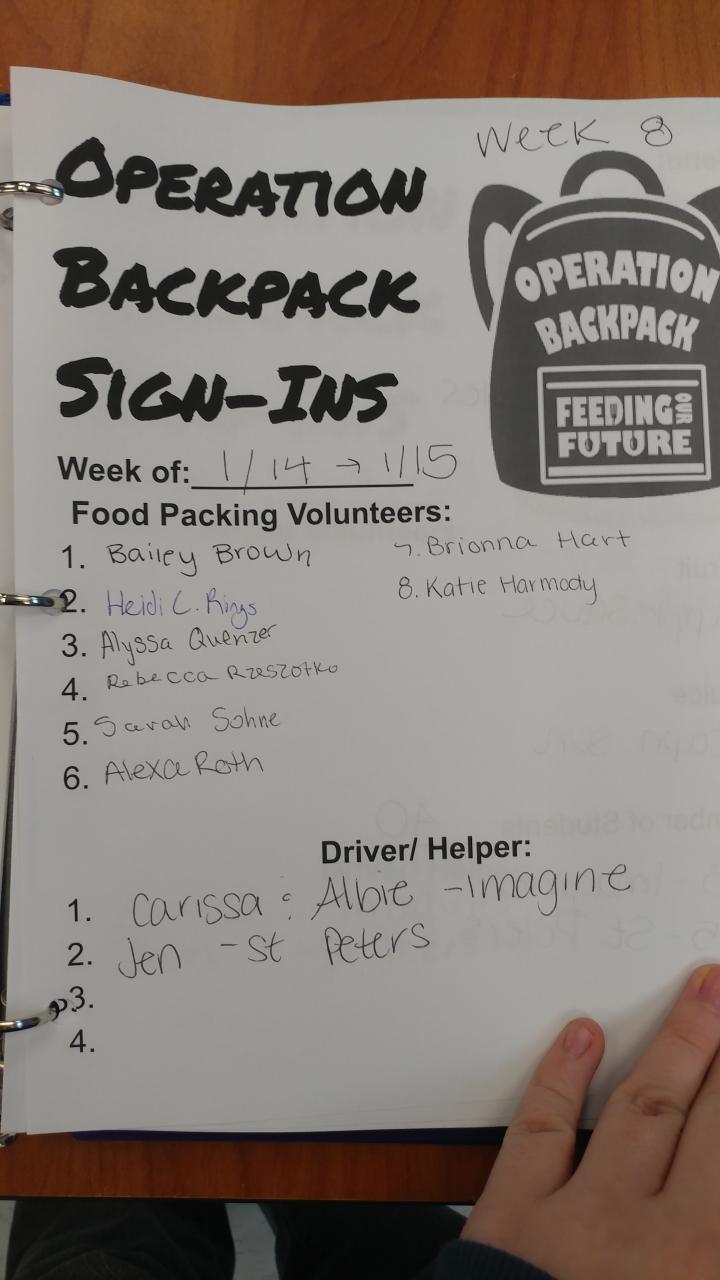 Week 8
OPERATION
BACKPACK
SIGN-INS
OPERATION
BACKPACK
FEEDING OUR
FUTURE
Week of: 1/14 → 1/15
Food Packing Volunteers:
1. Bailey Brown
2. Heidi C. Rings
3. Alyssa Quenzer
4. Rebecca Rzeszotko
5. Sarah Sohne
6. Alexa Roth
7. Brionna Hart
8. Katie Harmody
Driver/ Helper:
1. Carissa : Albie - Imagine
2. Jen - St Peters
3.
4.